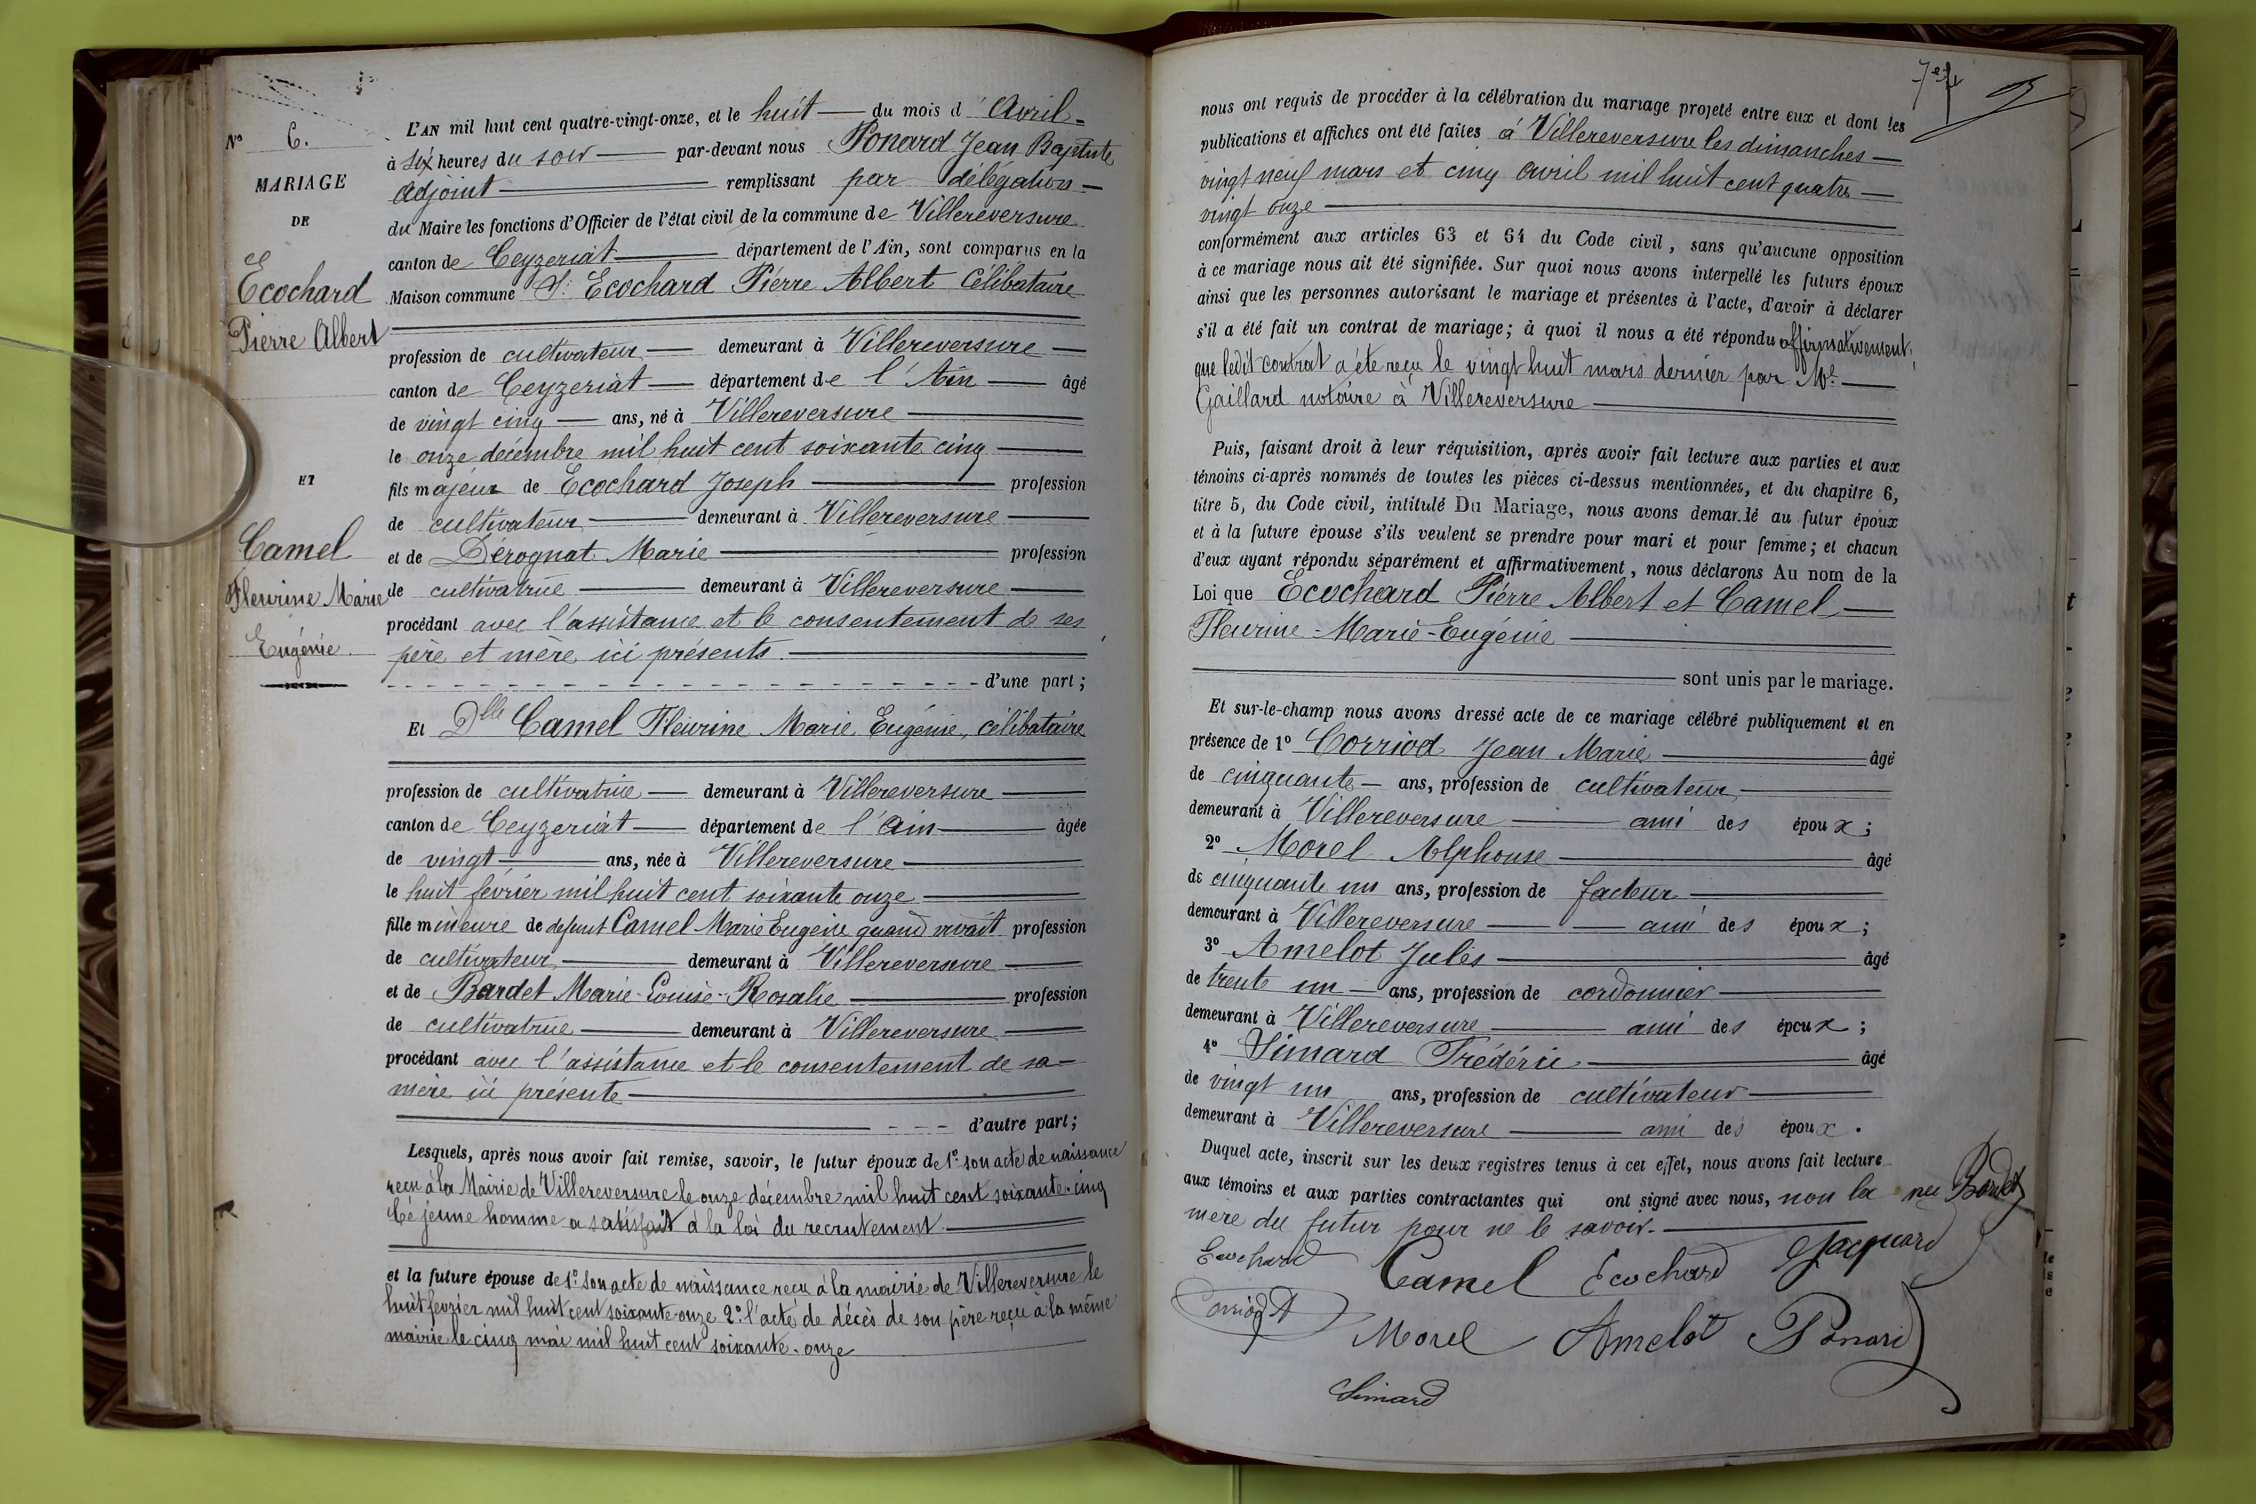 N° 6.
MARIAGE
DE
Ecochard
Pierre Albert
ET
Camel
Fleurine Marie
Eugénie
L'AN mil huit cent quatre-vingt-onze, et le huit du mois d'Avril
à six heures du soir par-devant nous Ponard Jean Baptiste
adjoint remplissant par délégation
du Maire les fonctions d'Officier de l'état civil de la commune de Villereversure
canton de Ceyzeriat département de l'Ain, sont comparus en la
Maison commune S. Ecochard Pierre Albert Célibataire
profession de cultivateur demeurant à Villereversure
canton de Ceyzeriat département de l'Ain âgé
de vingt cinq ans, né à Villereversure
le onze décembre mil huit cent soixante cinq
fils majeur de Ecochard Joseph profession
de cultivateur demeurant à Villereversure
et de Derognat Marie profession
de cultivatrice demeurant à Villereversure
procédant avec l'assistance et le consentement de ses
père et mère ici présents
d'une part ;
Et Dlle Camel Fleurine Marie Eugénie, célibataire
profession de cultivatrice demeurant à Villereversure
canton de Ceyzeriat département de l'Ain âgée
de vingt ans, née à Villereversure
le huit février mil huit cent soixante onze
fille mineure de defunt Camel Marie Eugène quand vivait profession
de cultivateur demeurant à Villereversure
et de Bardet Marie-Louise-Rosalie profession
de cultivatrice demeurant à Villereversure
procédant avec l'assistance et le consentement de sa
mère ici présente
d'autre part ;
Lesquels, après nous avoir fait remise, savoir, le futur époux de 1° son acte de naissance
reçu à la Mairie de Villereversure le onze décembre mil huit cent soixante-cinq
Ce jeune homme a satisfait à la loi du recrutement
et la future épouse de 1° son acte de naissance reçu à la mairie de Villereversure le
huit fevrier mil huit cent soixante-onze 2° l'acte de décès de son père reçu à la même
mairie le cinq mai mil huit cent soixante-onze
nous ont requis de procéder à la célébration du mariage projeté entre eux et dont les
publications et affiches ont été faites à Villereversure les dimanches
vingt neuf mars et cinq avril mil huit cent quatre
vingt onze
conformément aux articles 63 et 64 du Code civil, sans qu'aucune opposition
à ce mariage nous ait été signifiée. Sur quoi nous avons interpellé les futurs époux
ainsi que les personnes autorisant le mariage et présentes à l'acte, d'avoir à déclarer
s'il a été fait un contrat de mariage ; à quoi il nous a été répondu affirmativement,
que ledit contrat a été reçu le vingt huit mars dernier par Me
Gaillard notaire à Villereversure
Puis, faisant droit à leur réquisition, après avoir fait lecture aux parties et aux
témoins ci-après nommés de toutes les pièces ci-dessus mentionnées, et du chapitre 6,
titre 5, du Code civil, intitulé Du Mariage, nous avons demandé au futur époux
et à la future épouse s'ils veulent se prendre pour mari et pour femme ; et chacun
d'eux ayant répondu séparément et affirmativement, nous déclarons Au nom de la
Loi que Ecochard Pierre Albert et Camel
Fleurine-Marie-Eugénie
sont unis par le mariage.
Et sur-le-champ nous avons dressé acte de ce mariage célébré publiquement et en
présence de 1° Corriod Jean Marie âgé
de cinquante ans, profession de cultivateur
demeurant à Villereversure ami des époux ;
2° Morel Alphonse âgé
de cinquante un ans, profession de facteur
demeurant à Villereversure ami des époux ;
3° Amelot Jules âgé
de trente un ans, profession de cordonnier
demeurant à Villereversure ami des époux ;
4° Simard Frédéric âgé
de vingt un ans, profession de cultivateur
demeurant à Villereversure ami des époux.
Duquel acte, inscrit sur les deux registres tenus à cet effet, nous avons fait lecture
aux témoins et aux parties contractantes qui ont signé avec nous, non la
mère du futur pour ne le savoir.
née Bardet
Ecochard Camel Ecochard Jacquard
Corriod Morel Amelot Ponard
Simard